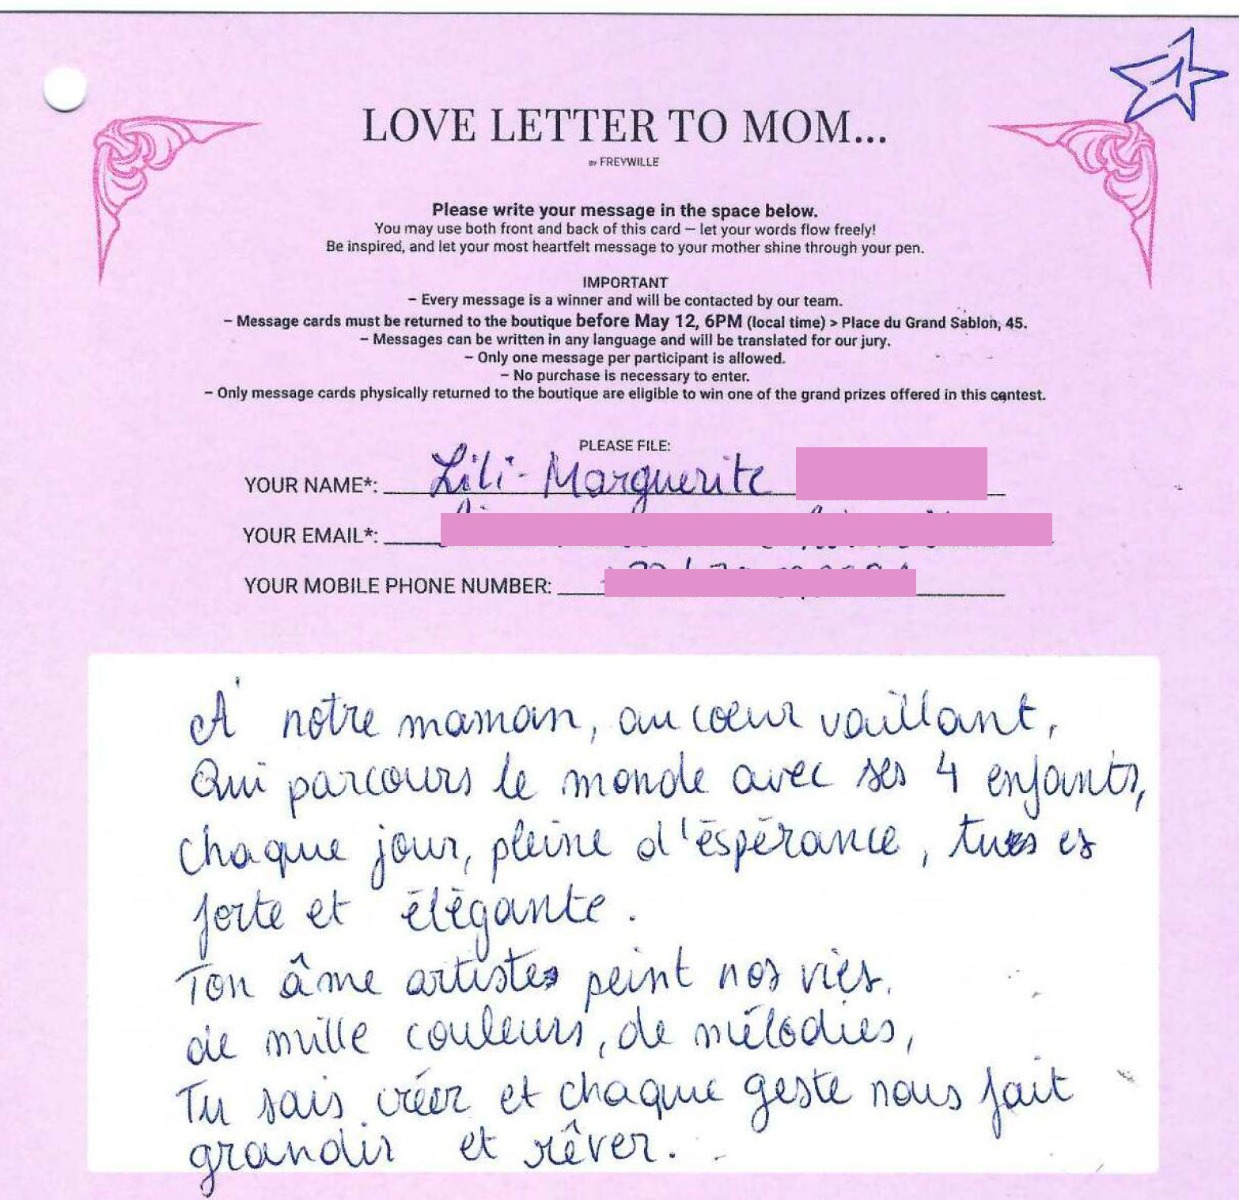 1
LOVE LETTER TO MOM...
BY FREYWILLE
Please write your message in the space below.
You may use both front and back of this card – let your words flow freely!
Be inspired, and let your most heartfelt message to your mother shine through your pen.
IMPORTANT
– Every message is a winner and will be contacted by our team.
– Message cards must be returned to the boutique before May 12, 6PM (local time) > Place du Grand Sablon, 45.
– Messages can be written in any language and will be translated for our jury.
– Only one message per participant is allowed.
– No purchase is necessary to enter.
– Only message cards physically returned to the boutique are eligible to win one of the grand prizes offered in this contest.
PLEASE FILE:
YOUR NAME*: Lili-Marguerite
YOUR EMAIL*:
YOUR MOBILE PHONE NUMBER:
À notre maman, au cœur vaillant,
Qui parcours le monde avec ses 4 enfants,
chaque jour, pleine d'éspérance, tu es
forte et élégante.
Ton âme artiste peint nos vies.
de mille couleurs, de mélodies,
Tu sais créer et chaque geste nous fait
grandir et rêver.